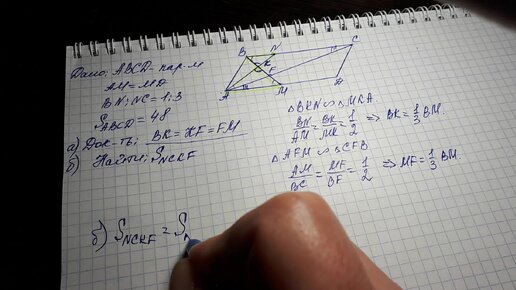 Дано: ABCD - пар-м
AM = MD
BN : NC = 1 : 3
S_ABCD = 48
а) Док-ть: BK = KF = FM
б) Найти: S_NCKF
B N C
K
F
A M D
△BKN ∾ △MKA.
BN/AM = BK/MK = 1/2 ⇒ BK = 1/3 BM.
△AFM ∾ △CFB
AM/BC = MF/BF = 1/2 ⇒ MF = 1/3 BM.
б) S_NCKF = S